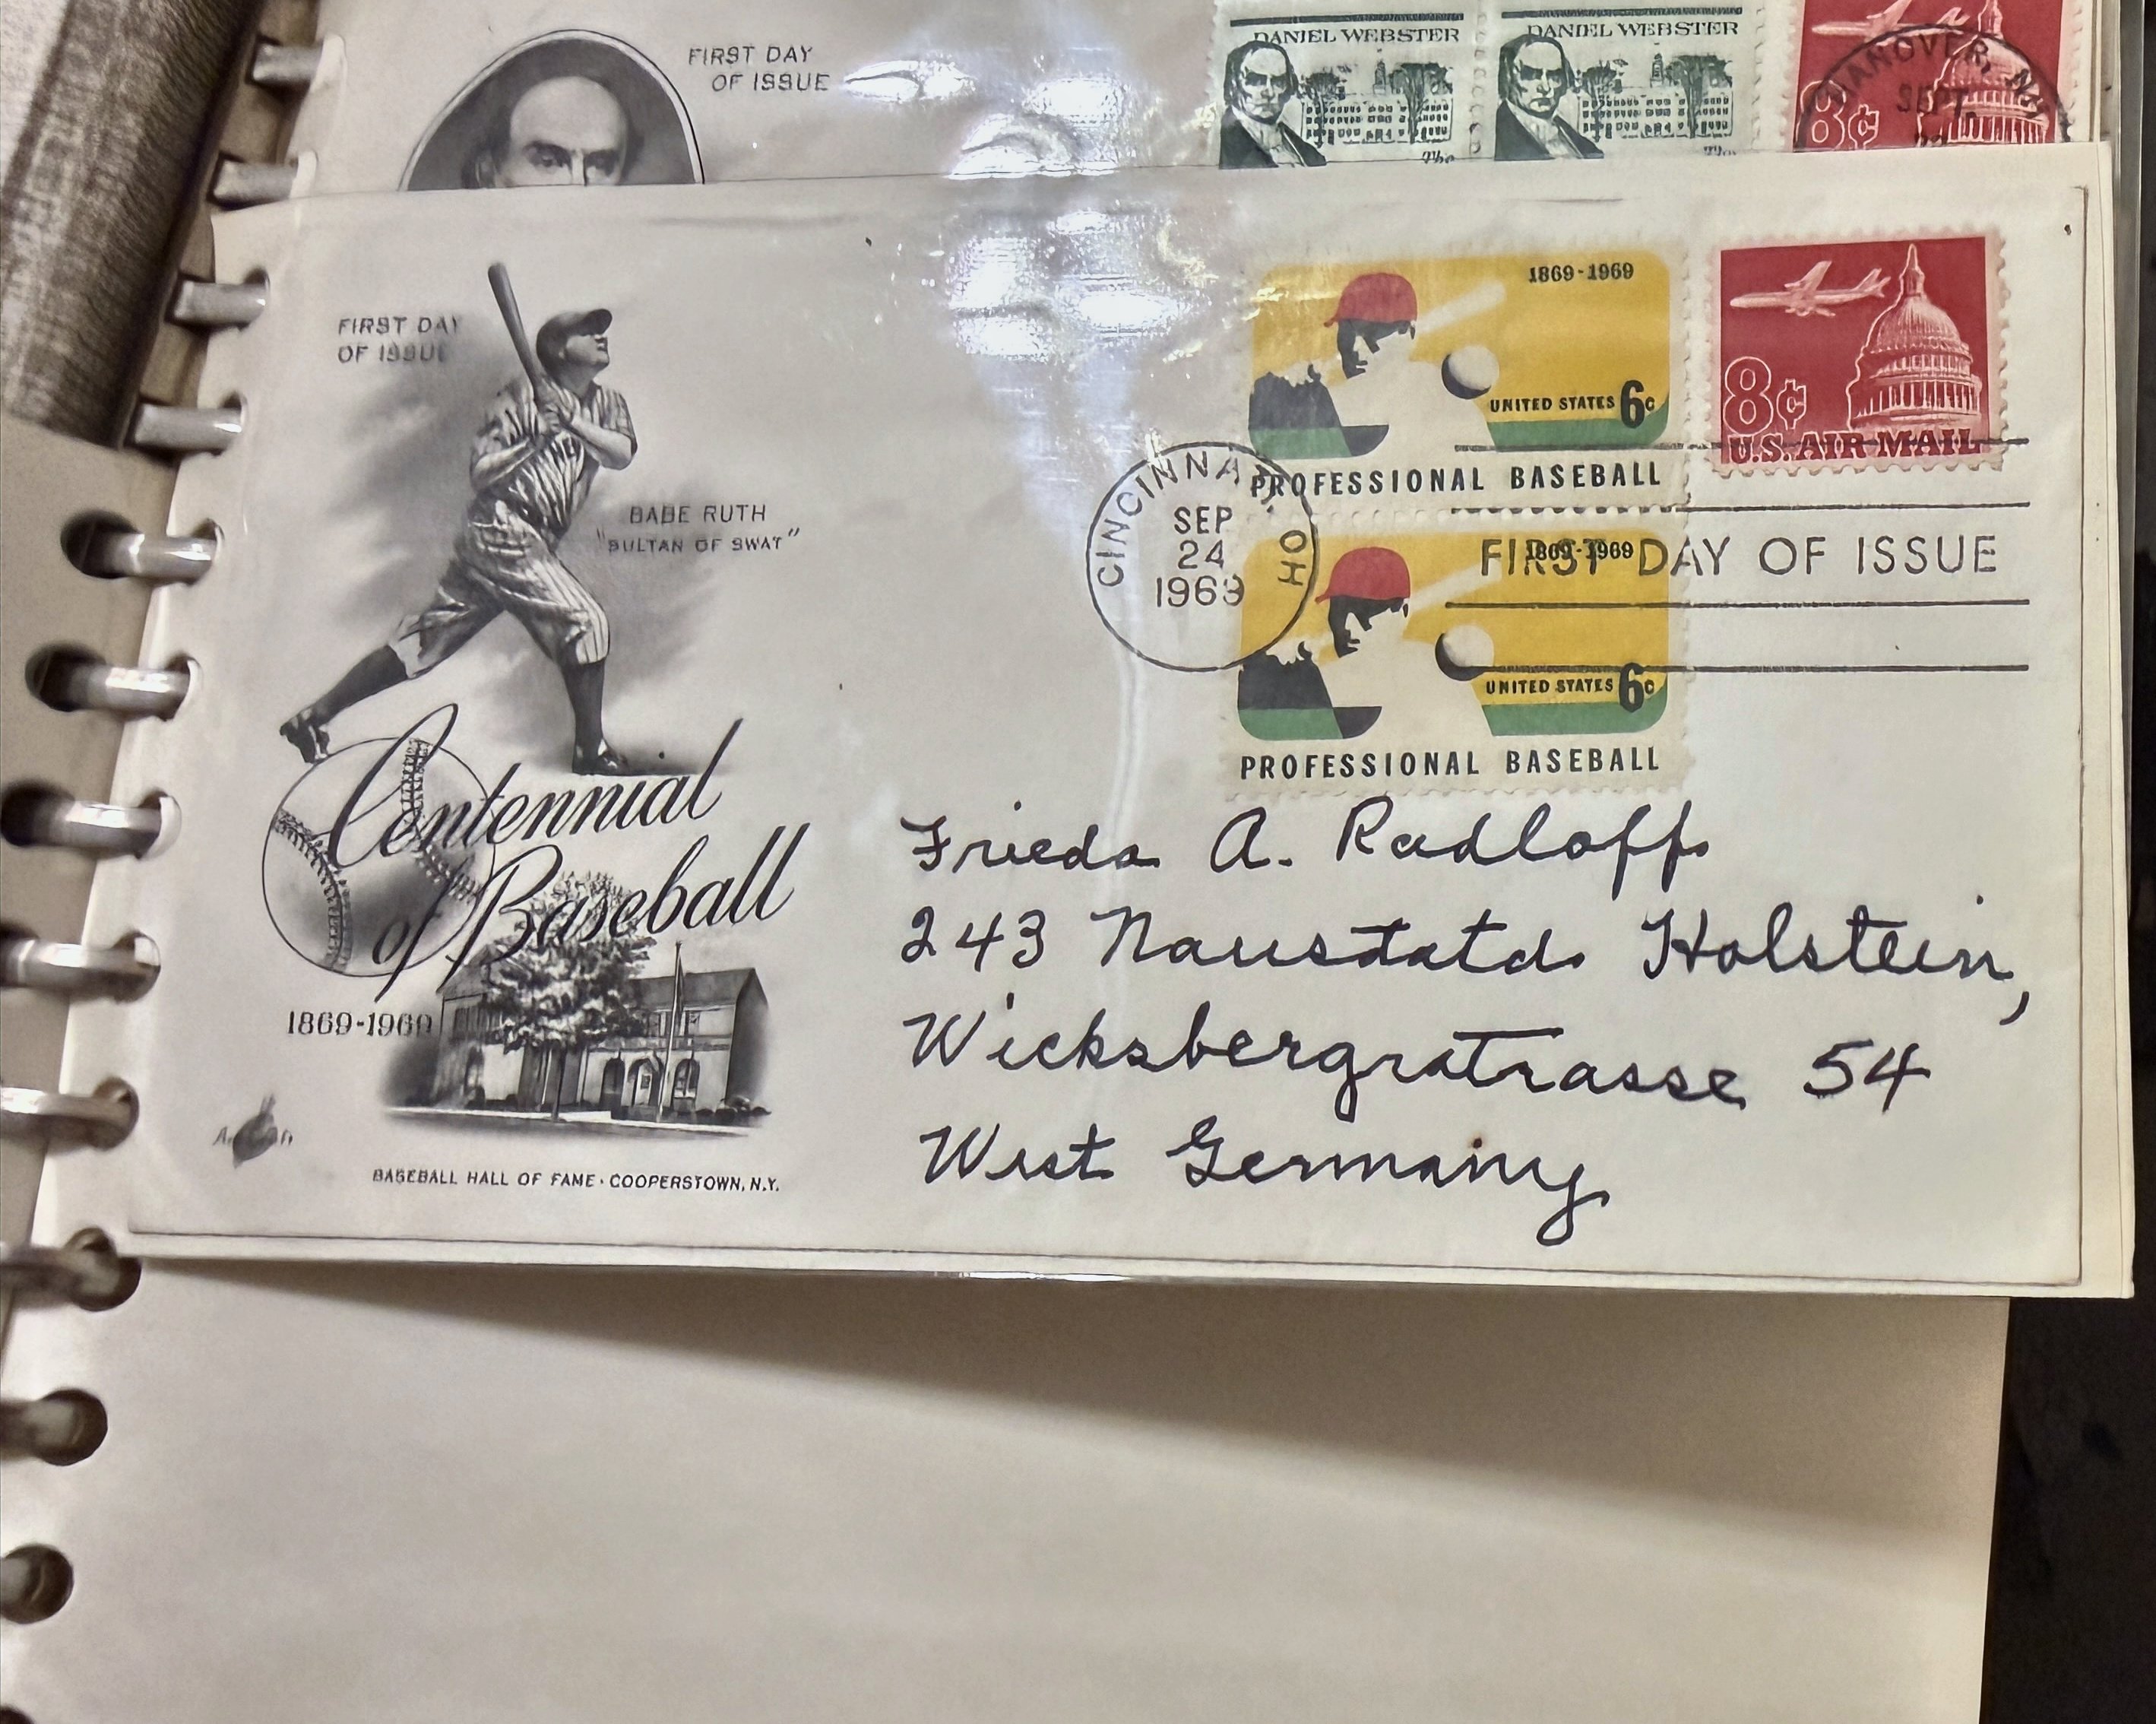 FIRST DAY
OF ISSUE
DANIEL WEBSTER
DANIEL WEBSTER
HANOVER, NH
SEPT.
22
8¢
FIRST DAY
OF ISSUE
BABE RUTH
"SULTAN OF SWAT"
Centennial
of Baseball
1869-1969
Artcraft
BASEBALL HALL OF FAME · COOPERSTOWN, N.Y.
1869-1969
UNITED STATES 6c
PROFESSIONAL BASEBALL
8¢
U.S. AIR MAIL
CINCINNATI, OH
SEP
24
1969
FIRST DAY OF ISSUE
1869-1969
UNITED STATES 6c
PROFESSIONAL BASEBALL
Frieda A. Radloff
243 Naustatd Holstein,
Wicksbergstrasse 54
West Germany